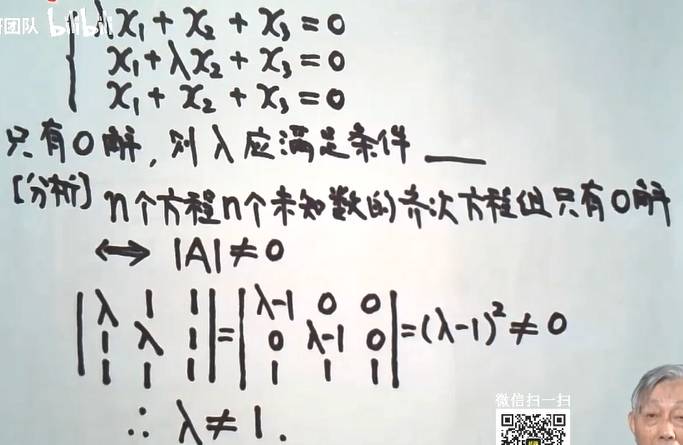 研团队 bilibili
λx₁ + x₂ + x₃ = 0
x₁ + λx₂ + x₃ = 0
x₁ + x₂ + x₃ = 0
只有0解, 则λ应满足条件 ___
[分析] n个方程n个未知数的齐次方程组只有0解
⟷ |A| ≠ 0
|λ 1 1; 1 λ 1; 1 1 1| = |λ-1 0 0; 0 λ-1 0; 1 1 1| = (λ-1)² ≠ 0
∴ λ ≠ 1.
微信扫一扫